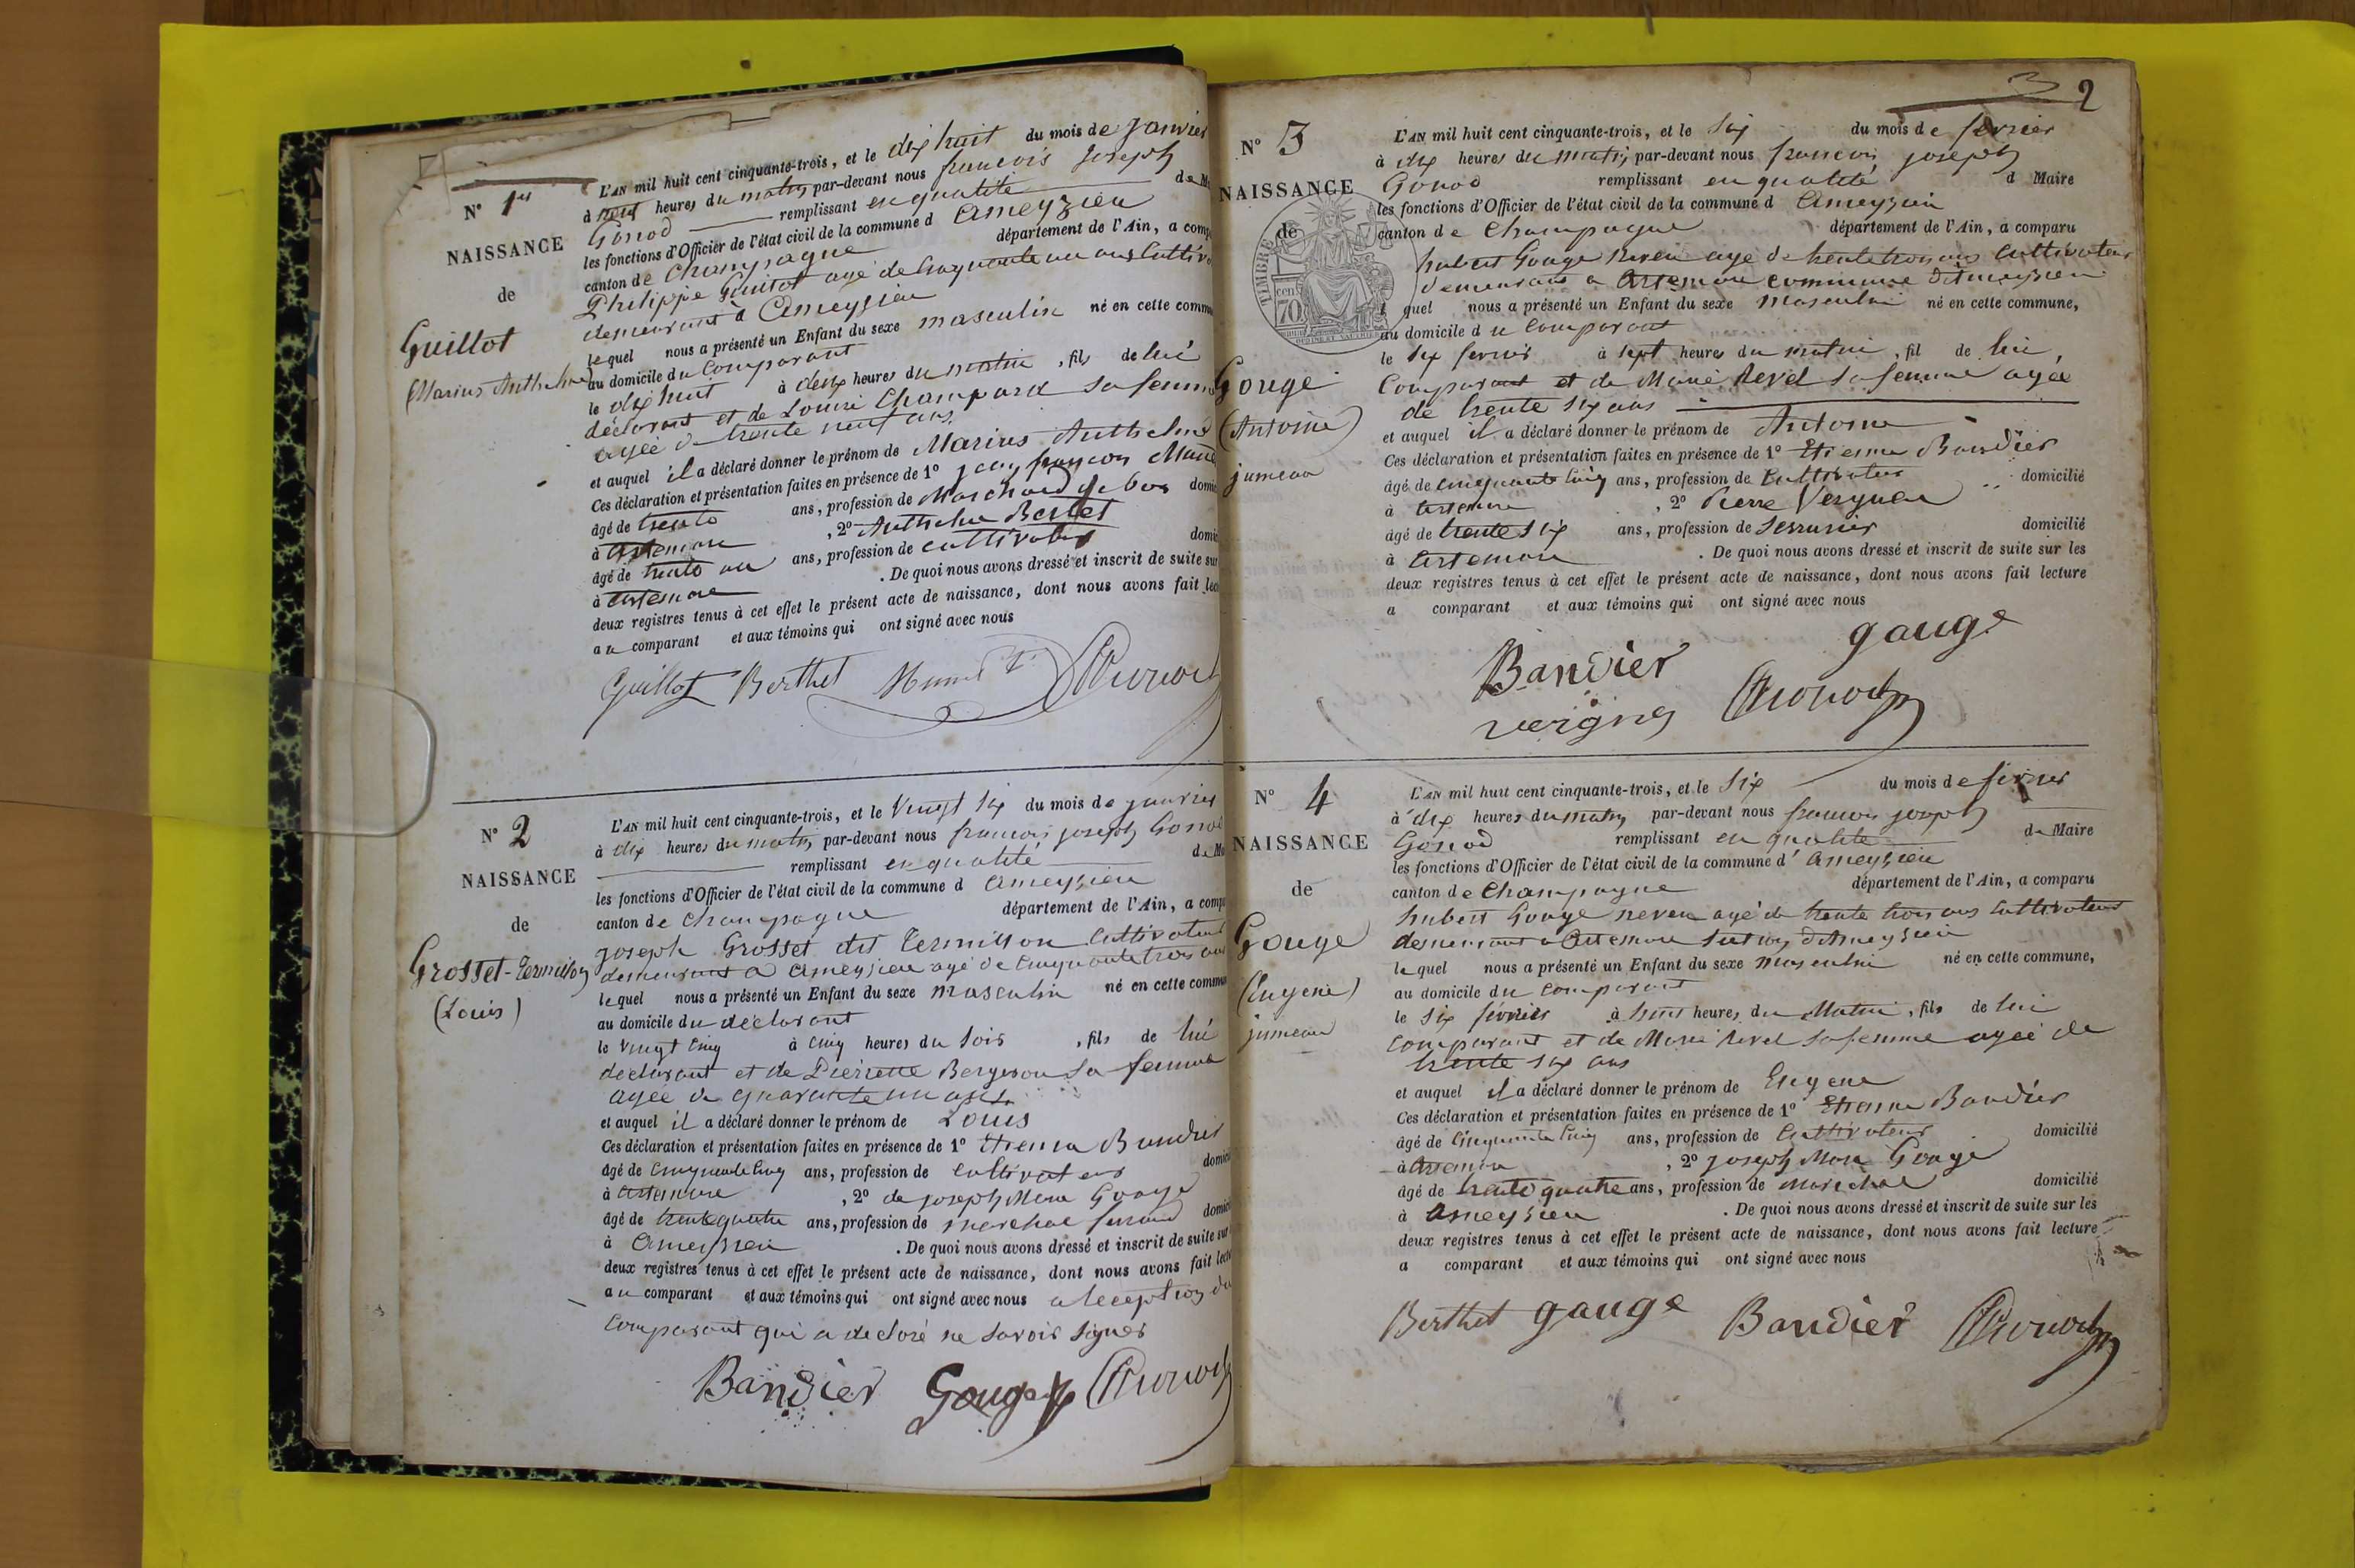 N° 1er
NAISSANCE
de
Guillot
(Marius Anthelme)
L'AN mil huit cent cinquante-trois, et le dix huit du mois de janvier
à neuf heures du matin par-devant nous francois Joseph
Gonod remplissant en qualité de M
les fonctions d'Officier de l'état civil de la commune d Ameyzieu
canton de Champagne département de l'Ain, a comp
Philippe Guillot agé de cinquante un ans Cultiv
demeurant à Ameyzieu
lequel nous a présenté un Enfant du sexe masculin né en cette commu
au domicile du Comparant
le dix huit à deux heures du matin, fils de lui
déclarant et de Louise Champard sa femme
agée de trente neuf ans
et auquel il a déclaré donner le prénom de Marius Anthelme
Ces déclaration et présentation faites en présence de 1° jean françois
âgé de trente ans, profession de Marchand de bois domic
à Artemare , 2° Anthelme Berthet
âgé de trente un ans, profession de cultivateur domic
à Artemare . De quoi nous avons dressé et inscrit de suite sur
deux registres tenus à cet effet le présent acte de naissance, dont nous avons fait lec
au comparant et aux témoins qui ont signé avec nous
Guillot Berthet Gonod
N° 2
NAISSANCE
de
Grosset-Termillon
(Louis)
L'AN mil huit cent cinquante-trois, et le Vingt six du mois de janvier
à dix heures du matin par-devant nous francois joseph Gonod
remplissant en qualité de M
les fonctions d'Officier de l'état civil de la commune d Ameyzieu
canton de Champagne département de l'Ain, a comp
joseph Grosset dit Termillon Cultivateur
demeurant à Ameyzieu agé de Cinquante trois ans
lequel nous a présenté un Enfant du sexe masculin né en cette commu
au domicile du déclarant
le vingt cinq à cinq heures du soir, fils de lui
déclarant et de Pierrette Bergeron sa femme
agée de quarante un ans
et auquel il a déclaré donner le prénom de Louis
Ces déclaration et présentation faites en présence de 1° Etienne Bandier
âgé de Cinquante Cinq ans, profession de Cultivateur domic
à Artemare , 2° de joseph Marie Gouge
âgé de trente quatre ans, profession de marechal ferrand domic
à Ameyzieu . De quoi nous avons dressé et inscrit de suite sur
deux registres tenus à cet effet le présent acte de naissance, dont nous avons fait lect
au comparant et aux témoins qui ont signé avec nous a lexception du
Comparant qui a declaré ne savoir signer
Bandier Gouge Gonod
3 2
N° 3
NAISSANCE
de
Gouge
(Antoine)
jumeau
TIMBRE
70
L'AN mil huit cent cinquante-trois, et le Six du mois de février
à dix heures du matin par-devant nous francois joseph
Gonod remplissant en qualité d Maire
les fonctions d'Officier de l'état civil de la commune d Ameyzieu
canton de Champagne département de l'Ain, a comparu
hubert Gouge neveu agé de trente trois ans Cultivateur
demeurant a Artemare commune d'Ameyzieu
l quel nous a présenté un Enfant du sexe masculin né en cette commune,
au domicile du Comparant
le six fevrier à sept heures du matin, fil de lui,
Comparant et de Marie Revel sa femme agée
de trente six ans
et auquel il a déclaré donner le prénom de Antoine
Ces déclaration et présentation faites en présence de 1° Etienne Bandier
âgé de cinquante cinq ans, profession de Cultivateur domicilié
à Artemare , 2° Pierre
âgé de trente six ans, profession de Serrurier domicilié
à Artemare . De quoi nous avons dressé et inscrit de suite sur les
deux registres tenus à cet effet le présent acte de naissance, dont nous avons fait lecture
a comparant et aux témoins qui ont signé avec nous
gauge
Bandier
Gonod
N° 4
NAISSANCE
de
Gouge
(Eugene)
jumeau
L'AN mil huit cent cinquante-trois, et le Six du mois de fevrier
à dix heures du matin par-devant nous francois joseph
Gonod remplissant en qualité de Maire
les fonctions d'Officier de l'état civil de la commune d' Ameyzieu
canton de Champagne département de l'Ain, a comparu
hubert Gouge neveu agé de trente trois ans Cultivateur
demeurant a Artemare d'Ameyzieu
lequel nous a présenté un Enfant du sexe masculin né en cette commune,
au domicile du Comparant
le six février à huit heures du Matin, fils de lui
comparant et de Marie Revel sa femme agée de
trente six ans
et auquel il a déclaré donner le prénom de Eugene
Ces déclaration et présentation faites en présence de 1° Etienne Bandier
âgé de Cinquante Cinq ans, profession de Cultivateur domicilié
à Artemare , 2° joseph Marie Gouge
âgé de trente quatre ans, profession de marechal domicilié
à Ameyzieu . De quoi nous avons dressé et inscrit de suite sur les
deux registres tenus à cet effet le présent acte de naissance, dont nous avons fait lecture
a comparant et aux témoins qui ont signé avec nous
Berthet gauge Bandier Gonod